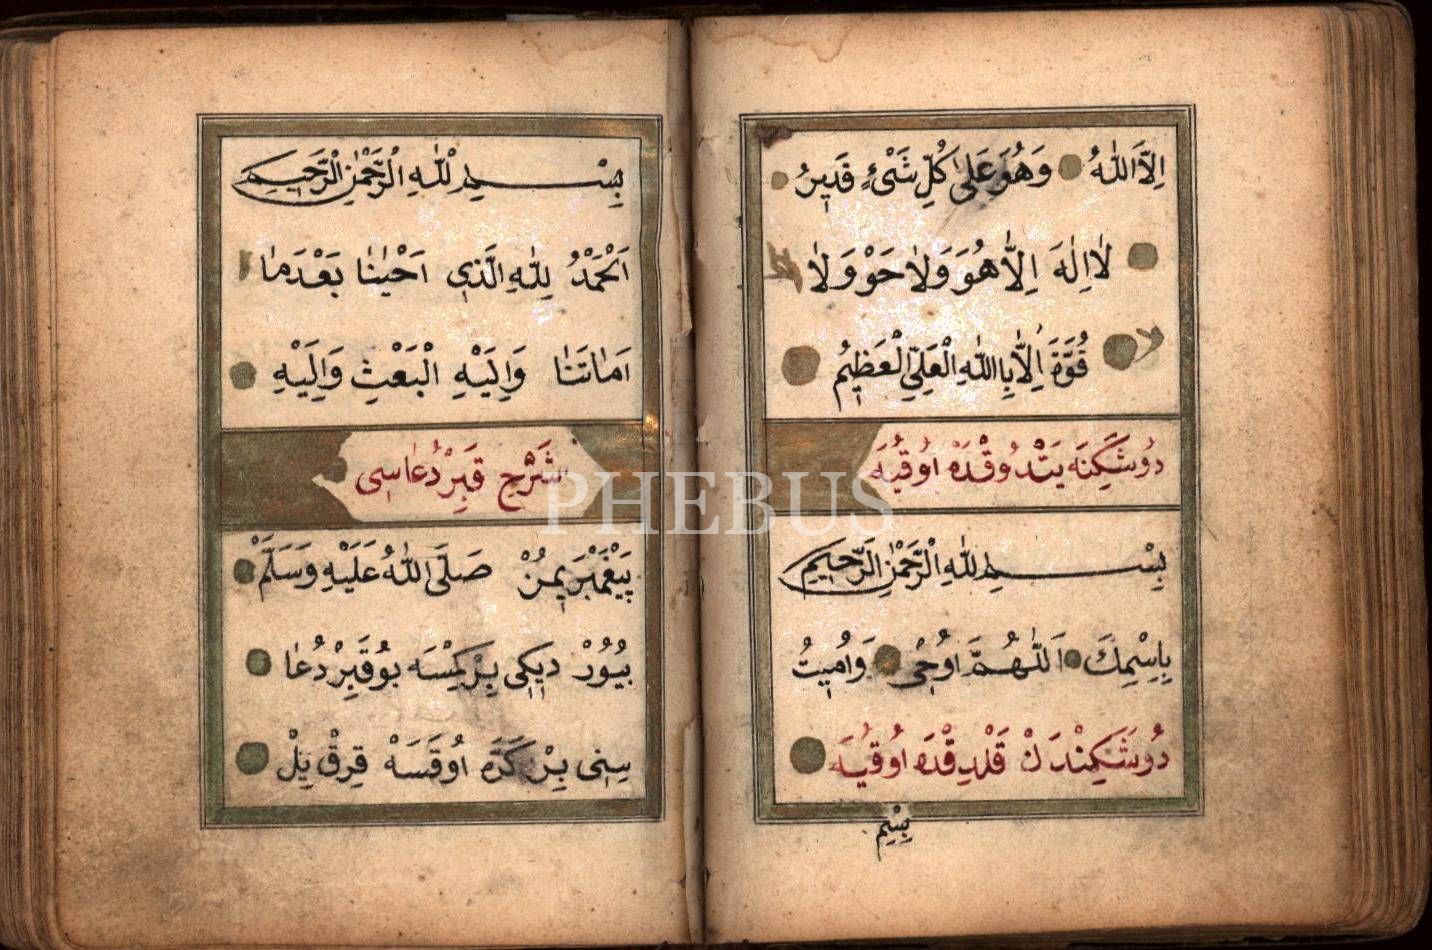 اِلاَّ اللّٰهُ وَهُوَ عَلٰى كُلِّ شَىْءٍ قَدِيرٌ
لَا اِلٰهَ اِلَّا هُوَ وَلَا حَوْ وَلَا
قُوَّةَ اِلَّا بِاللّٰهِ الْعَلِىِّ الْعَظِيمُ
دُوشَكِنَه يَتْدُوقْدَهْ اوُقُيَهَ
بِسْمِ اللّٰهِ الرَّحْمٰنِ الرَّحِيمِ
بِاِسْمِكَ اَللّٰهُمَّ اوُحْىِ وَاُمِيتُ
دُوشَكِنْدَنْ قَلْدِقْدَه اوُقُيَهَ
بِسْمِ
بِسْمِ اللّٰهِ الرَّحْمٰنِ الرَّحِيمِ
اَلْحَمْدُ لِلّٰهِ الَّذِى اَحْيَانَا بَعْدَ مَا
اَمَاتَنَا وَاِلَيْهِ الْبَعْثِ وَاِلَيْهِ
شَرْحِ قَبِرْ دُعَاسِى
پَيْغَمْبَرِيمُنْ صَلَّى اللّٰهُ عَلَيْهِ وَسَلَّمْ
بُيُورْ دِيكِى بِرْ كِمْسَه بُو قَبِرْ دُعَا
سِنِى بِرْ كَرَّه اوُقَسَهْ قِرْقْ يِلْ
PHEBUS